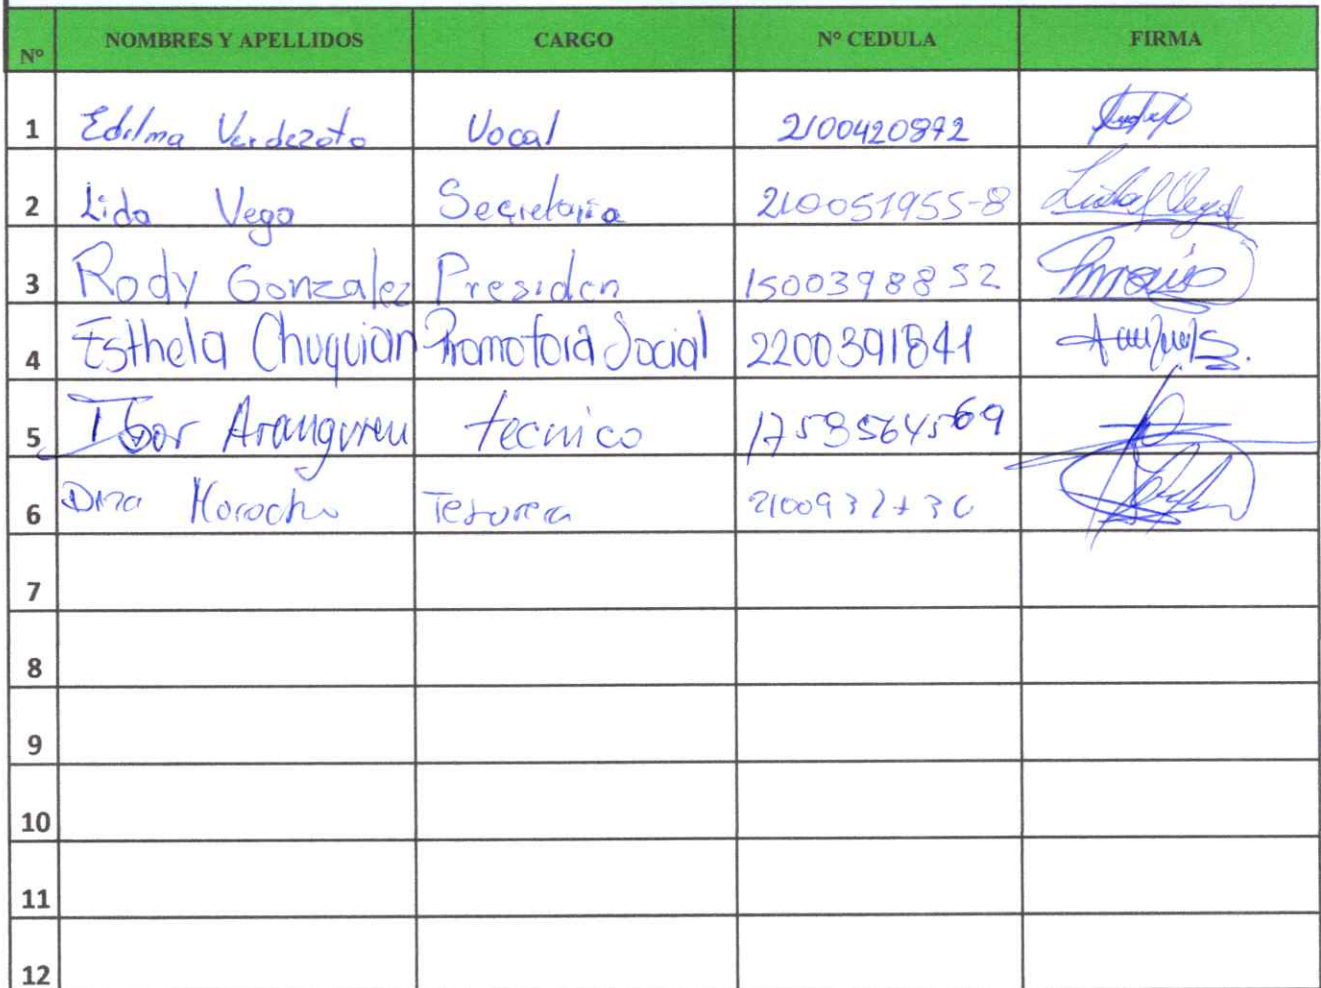 Nº NOMBRES Y APELLIDOS CARGO Nº CEDULA FIRMA
1 Edilma Verdezoto Vocal 2100420872
2 Lida Vega Secretaria 210051955-8
3 Rody Gonzalez Presiden 1500398852
4 Esthela Chuquian Promotora Social 2200391841
5 Aranguren tecnico
6 Morocho Tesorera
7
8
9
10
11
12